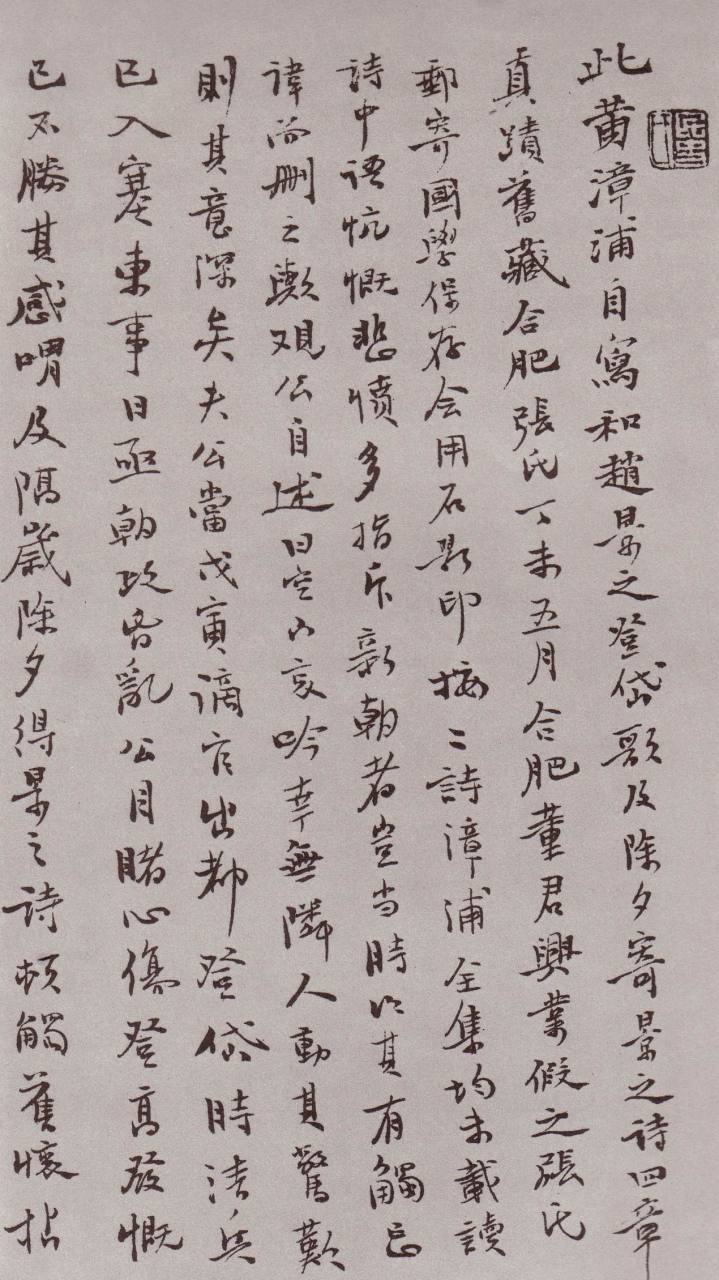 此黄漳浦自寫和趙景之登岱歌及除夕寄景之詩四章
真蹟舊藏合肥張氏丁未五月合肥董君興業假之張氏
郵寄國學保存会用石影印按二詩漳浦全集均未載讀
詩中語忼慨悲憤多指斥新朝者豈当時以其有觸忌
諱而刪之歟观公自述曰空山哀吟幸無隣人動其驚歎
則其意深矣夫公當戊寅謫官出都登岱時清兵
已入塞東事日亟朝政昏亂公目睹心傷登高發慨
已不勝其感喟及隔歲除夕得景之詩頓觸舊懷拈